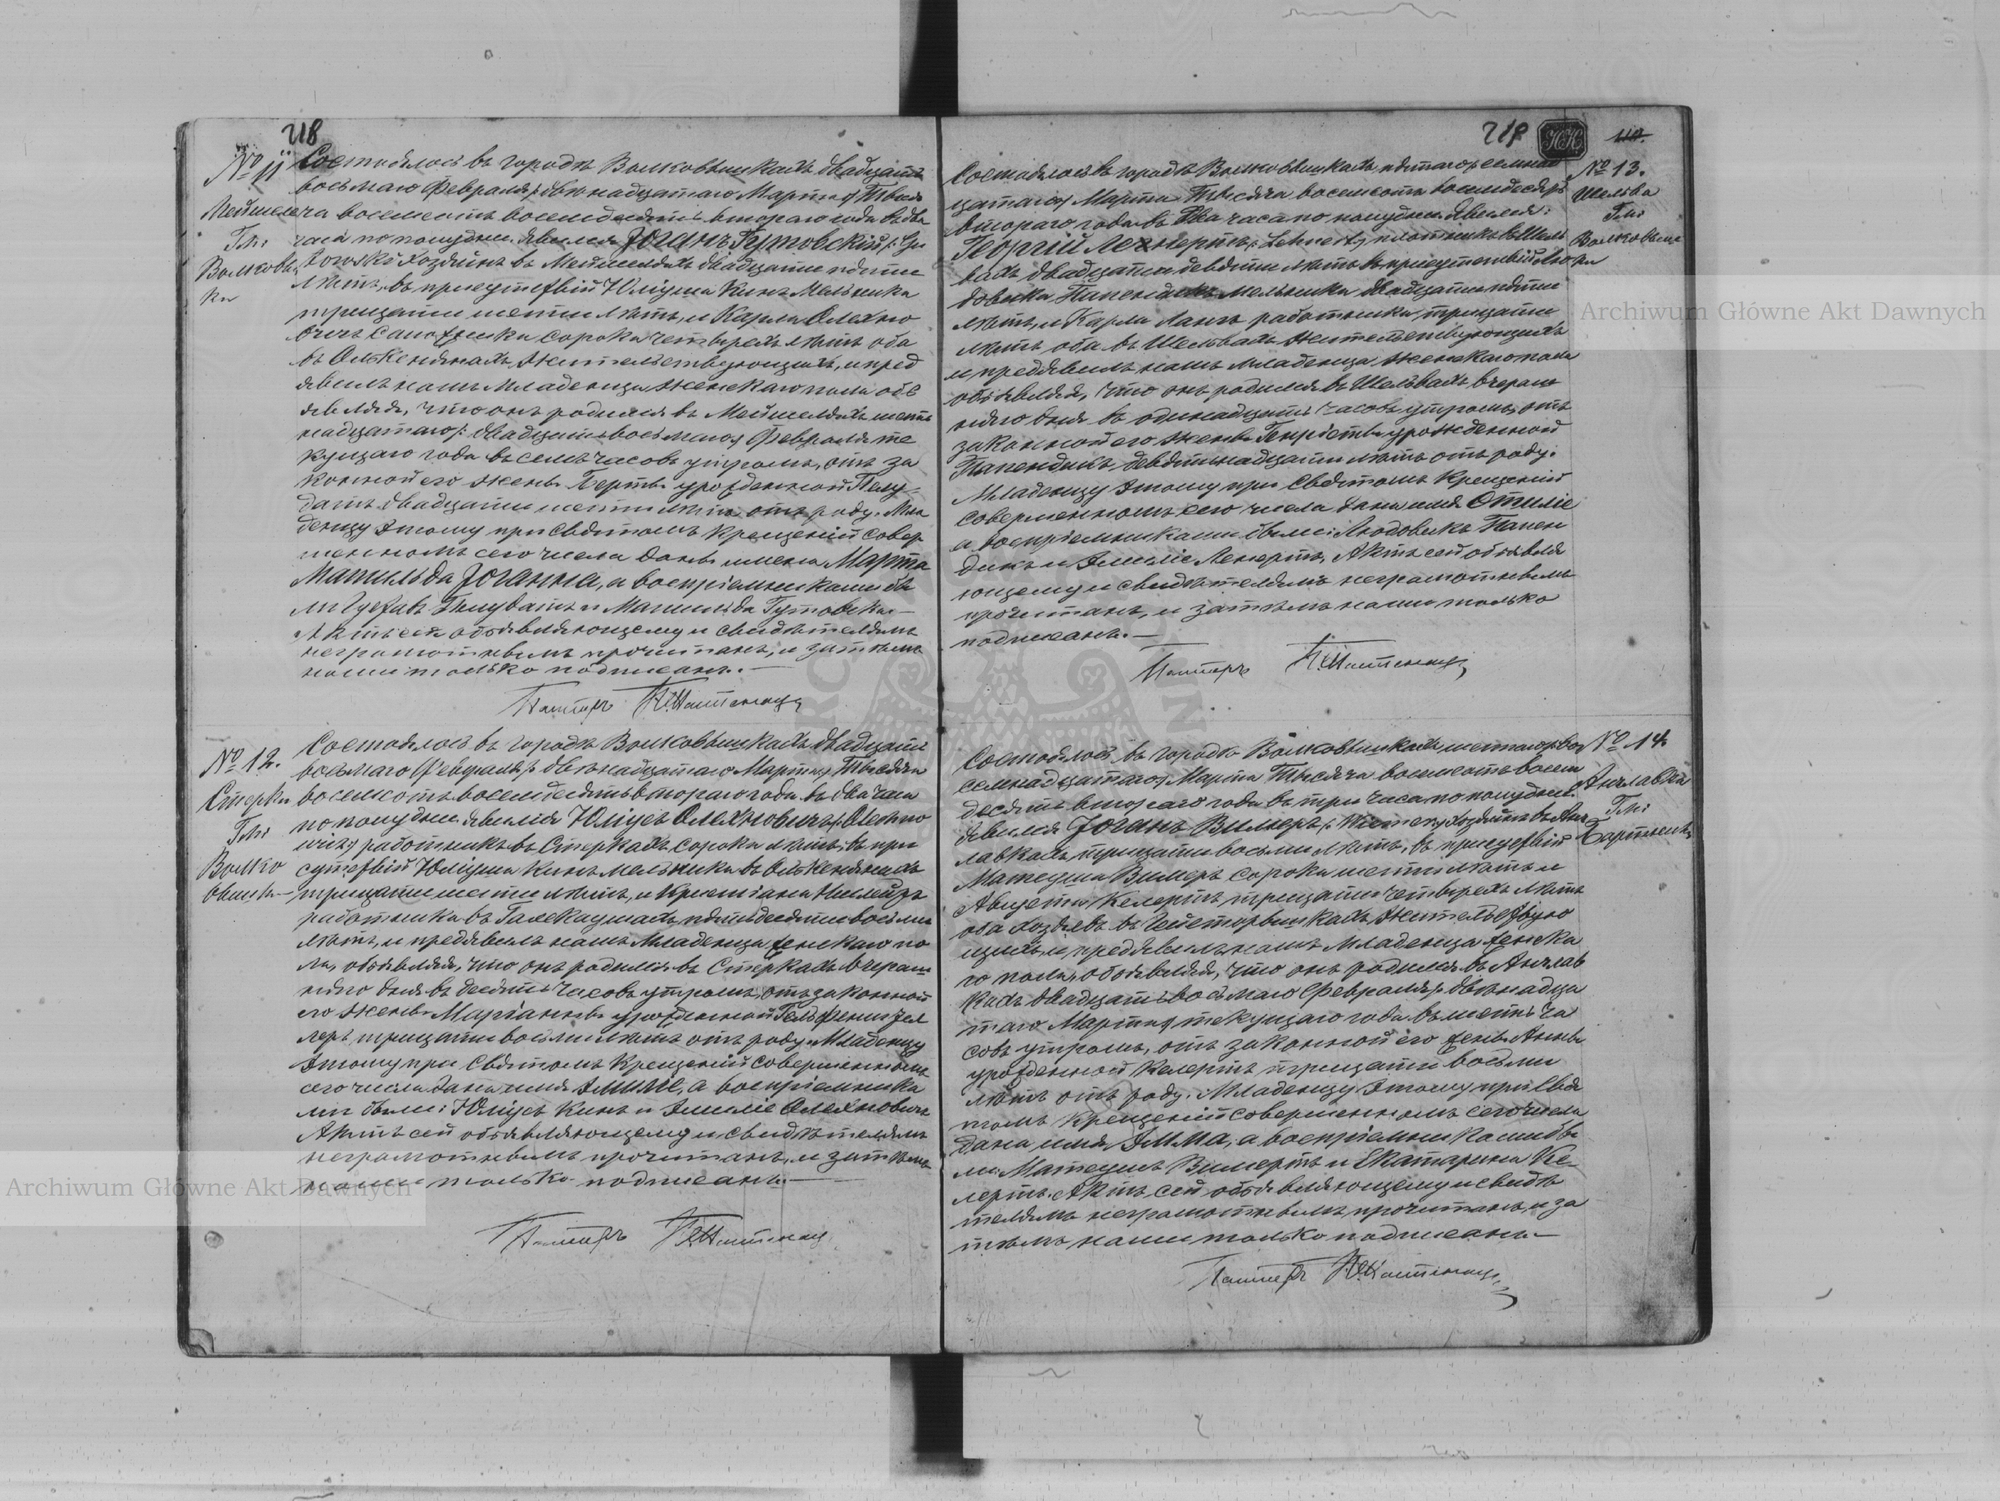 218
№ 11
Мейшеле
Гм:
Волковыш
ки
Состоялось въ городѣ Волковышкахъ двадцать
восьмаго Февраля /: двѣнадцатаго Марта :/ Тысяча
восемьсотъ восемьдесятъ втораго года въ два
часа по полудни. Явился Іоганъ Гутовскій
хозяинъ въ Мейшеляхъ двадцати пяти
лѣтъ, въ присутствіи Юліуша Кинъ Мельника
тридцати шести лѣтъ, и Карла Олехно
вичъ сорока четырехъ лѣтъ оба
въ жительствующихъ, и пред
явилъ намъ Младенца женскаго пола объ
являя, что онъ родился въ Мейшеляхъ шест
надцатаго /: двадцать восьмаго :/ Февраля те
кущаго года въ семь часовъ утромъ, отъ за
конной его жены Берты урожденной
двадцати шести лѣтъ отъ роду. Мла
денцу этому при Святомъ Крещеніи совер
шенномъ сего числа даны имена Марта
Матильда Іоганна, а воспріемниками бы
ли Густавъ и Матильда Гутовска.—
Актъ сей объявляющему и свидѣтелямъ
неграмотнымъ прочитанъ, и затѣмъ
нами только подписанъ.—
Пасторъ
№ 12.
Стерки
Гм:
Волко
вышки—
Состоялось въ городѣ Волковышкахъ двадцать
восьмаго Февраля /: двѣнадцатаго Марта :/ Тысяча
восемьсотъ восемьдесятъ втораго года въ два часа
по полудни. Явился Юліусъ Олехновичъ /: Olechno
wicz :/ работникъ въ Стеркахъ, сорока лѣтъ, въ при
сутствіи Юліуша Кинъ мельника въ
тридцати шести лѣтъ, и Христіана
работника въ пятьдесяти восьми
лѣтъ, и предъявилъ намъ Младенца женскаго по
ла, объявляя, что онъ родился въ Стеркахъ вчераш
няго дня въ десять часовъ утромъ, отъ законной
его жены Маріанны урожденной
тридцати восьми лѣтъ отъ роду. Младенцу
этому при Святомъ Крещеніи совершенномъ
сего числа дано имя Эмиліе, а воспріемника
ми были: Юліусъ Кинъ и Эмиліе Олехновичъ
Актъ сей объявляющему и свидѣтелямъ
неграмотнымъ прочитанъ, и затѣмъ
нами только подписанъ.—
Пасторъ
219
№ 13.
Шельва
Гм:
Волковыш
ки
Состоялось въ городѣ Волковышкахъ пятаго /: семнад
цатаго :/ Марта Тысяча восемьсотъ восемьдесятъ
втораго года въ два часа по полудни. Явился:
Георгій Ленертъ /: Lehnert :/ плотникъ въ Шель
вахъ двадцати девяти лѣтъ въ присутствіи Лю
довика Папендикъ мельника двадцати пяти
лѣтъ, и Карла Лангъ работника тридцати
лѣтъ оба въ Шельвахъ жительствующихъ
и предъявилъ намъ младенца женскаго пола
объявляя, что онъ родился въ Шельвахъ вчераш
няго дня въ одинадцать часовъ утромъ, отъ
законной его жены Генріеты урожденной
Папендикъ, девятнадцати лѣтъ отъ роду.
Младенцу этому при Святомъ Крещеніи
совершенномъ сего числа дано имя Отиліе
а воспріемниками были: Людовикъ Папен
дикъ и Эмиліе Ленертъ. Актъ сей объявля
ющему и свидѣтелямъ неграмотнымъ
прочитанъ, и затѣмъ нами только
подписанъ.—
Пасторъ
№ 14.
Гм:
Состоялось въ городѣ Волковышкахъ
семнадцатаго :/ Марта Тысяча восемьсотъ восемь
десятъ втораго года въ три часа по полудни.
Явился Іоганъ Вимеръ хозяинъ въ Анч
лавкахъ тридцати восьми лѣтъ, въ присутствіи
Матеуша Вимеръ сорока шести лѣтъ и
Августа Келертъ тридцати четырехъ лѣтъ
оба хозяевъ въ жительствую
щихъ, и предъявилъ намъ Младенца женска
го пола, объявляя, что онъ родился въ Анчлав
кахъ двадцать восьмаго Февраля /: двѣнадца
таго Марта :/ текущаго года въ шесть ча
совъ утромъ, отъ законной его жены Анны
урожденной Келертъ тридцати восьми
лѣтъ отъ роду. Младенцу этому при Свя
томъ Крещеніи совершенномъ сего числа
дано имя Эмма, а воспріемниками бы
ли Матеушъ Вимертъ и Екатарина Ке
лертъ. Актъ сей объявляющему и свидѣ
телямъ неграмотнымъ прочитанъ, и за
тѣмъ нами только подписанъ.—
Пасторъ
Archiwum Główne Akt Dawnych
Archiwum Główne Akt Dawnych